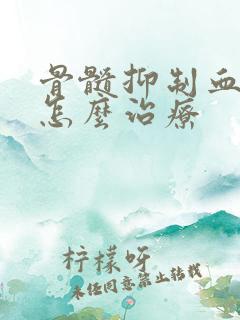 骨髓抑制血
怎麼治療
柠檬呀
未经同意禁止转载